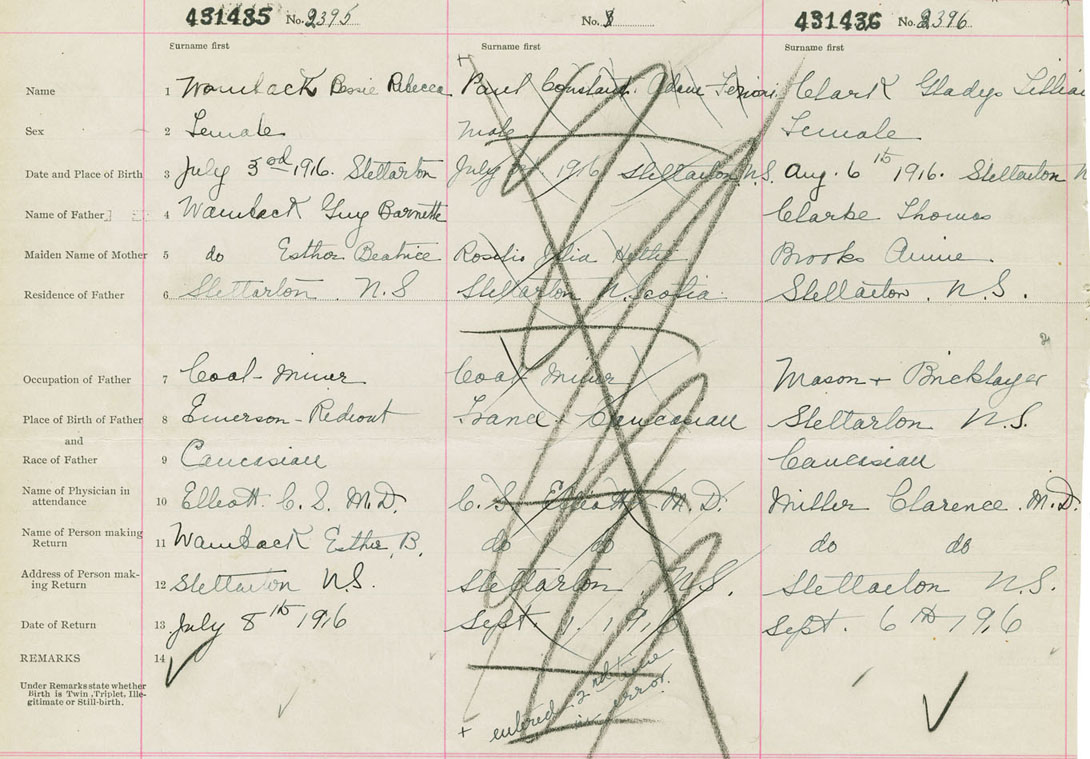 431435 No. 2395 No. 431436 No. 2396
Surname first Surname first Surname first
Name 1 Wamback Bessie Rebecca Paul Constant Adam Clark Gladys Lillian
Sex 2 Female Male Female
Date and Place of Birth 3 July 3rd 1916. Stellarton July 1916 Stellarton N.S. Aug. 6th 1916. Stellarton N
Name of Father 4 Wamback Guy Barnette Clarke Thomas
Maiden Name of Mother 5 do Esther Beatrice Julia Brooks Annie.
Residence of Father 6 Stellarton. N.S Stellarton N. Scotia Stellarton. N.S.
Occupation of Father 7 Coal-Miner Coal Miner Mason + Bricklayer
Place of Birth of Father 8 Emerson-Rideout France Caucasian Stellarton N.S.
and
Race of Father 9 Caucasian Caucasian
Name of Physician in
attendance 10 Elliott C. S. M.D. C. S. Elliott M.D. Miller Clarence. M.D.
Name of Person making
Return 11 Wamback Esther B. do do do do
Address of Person mak-
ing Return 12 Stellarton N.S. Stellarton N.S. Stellarton N.S.
Date of Return 13 July 8th 1916 Sept. 1. 1916 Sept. 6th 1916
REMARKS 14
Under Remarks state whether
Birth is Twin, Triplet, Ille-
gitimate or Still-birth.
+ entered 2nd time
in error.